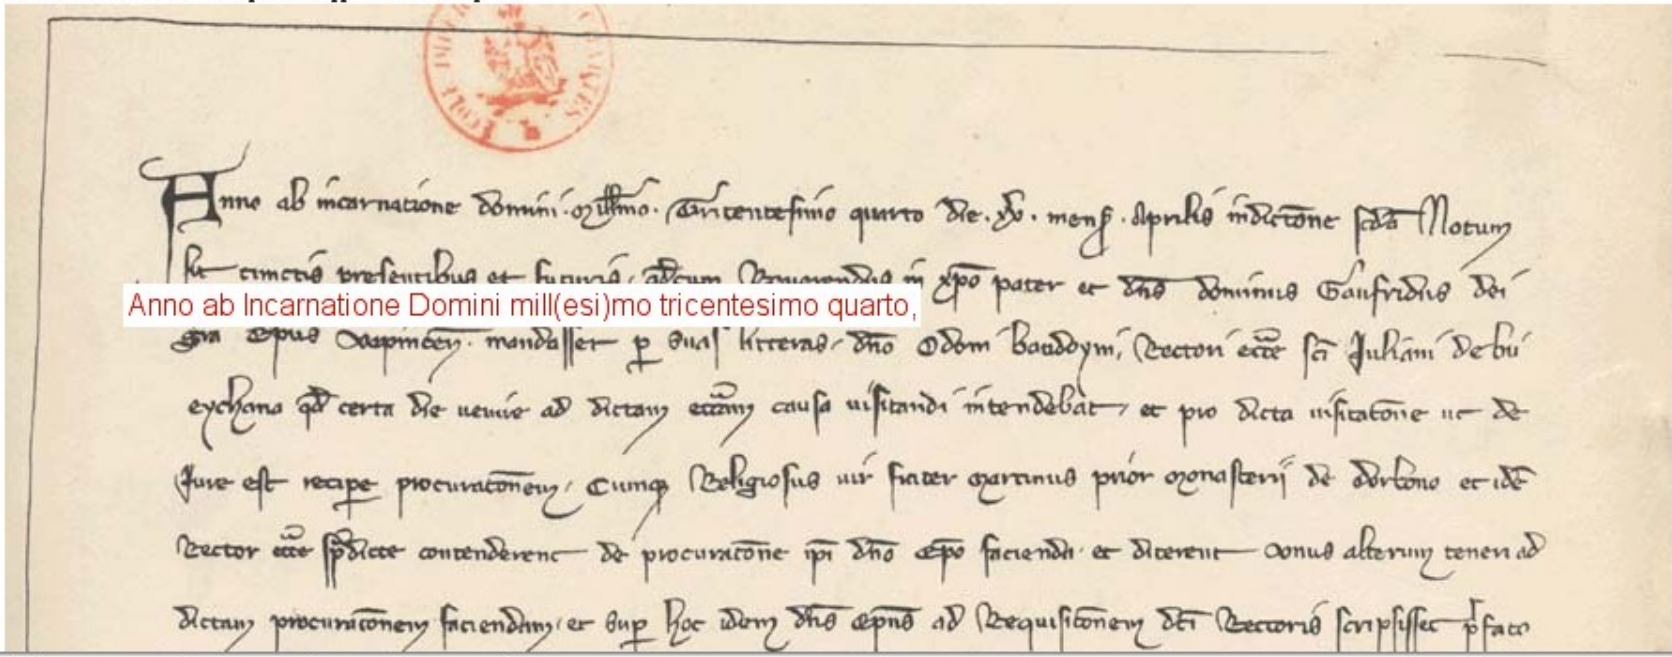 Anno ab incarnatione domini millmo. Tricentesimo quarto die. xv. mens. Aprilis indictone scda Notum
sit cunctis presentibus et futuris. qd cum Reverendus in xpo pater et dns dominus Gaufridus dei
Anno ab Incarnatione Domini mill(esi)mo tricentesimo quarto,
gra Epus Vapincen. mandasset per suas litteras dno Odoni baudoyni, Rectori eccle sci Iuliani de bu
eychana qd certa die venire ad dictam ecclam causa visitandi intendebat, et pro dicta visitatone ut de
Iure est recipe procuratonem. Cumque Religiosus vir frater martinus prior monasterii de dorbono et idem
Rector eccle spradicte contenderent de procuratone ipi dno Epo facienda. et dicerent vonus alterum teneri ad
dictam procuratonem faciendam, et super hoc idem dns Epus ad Requisitonem dci Rectoris scripsisset prfato